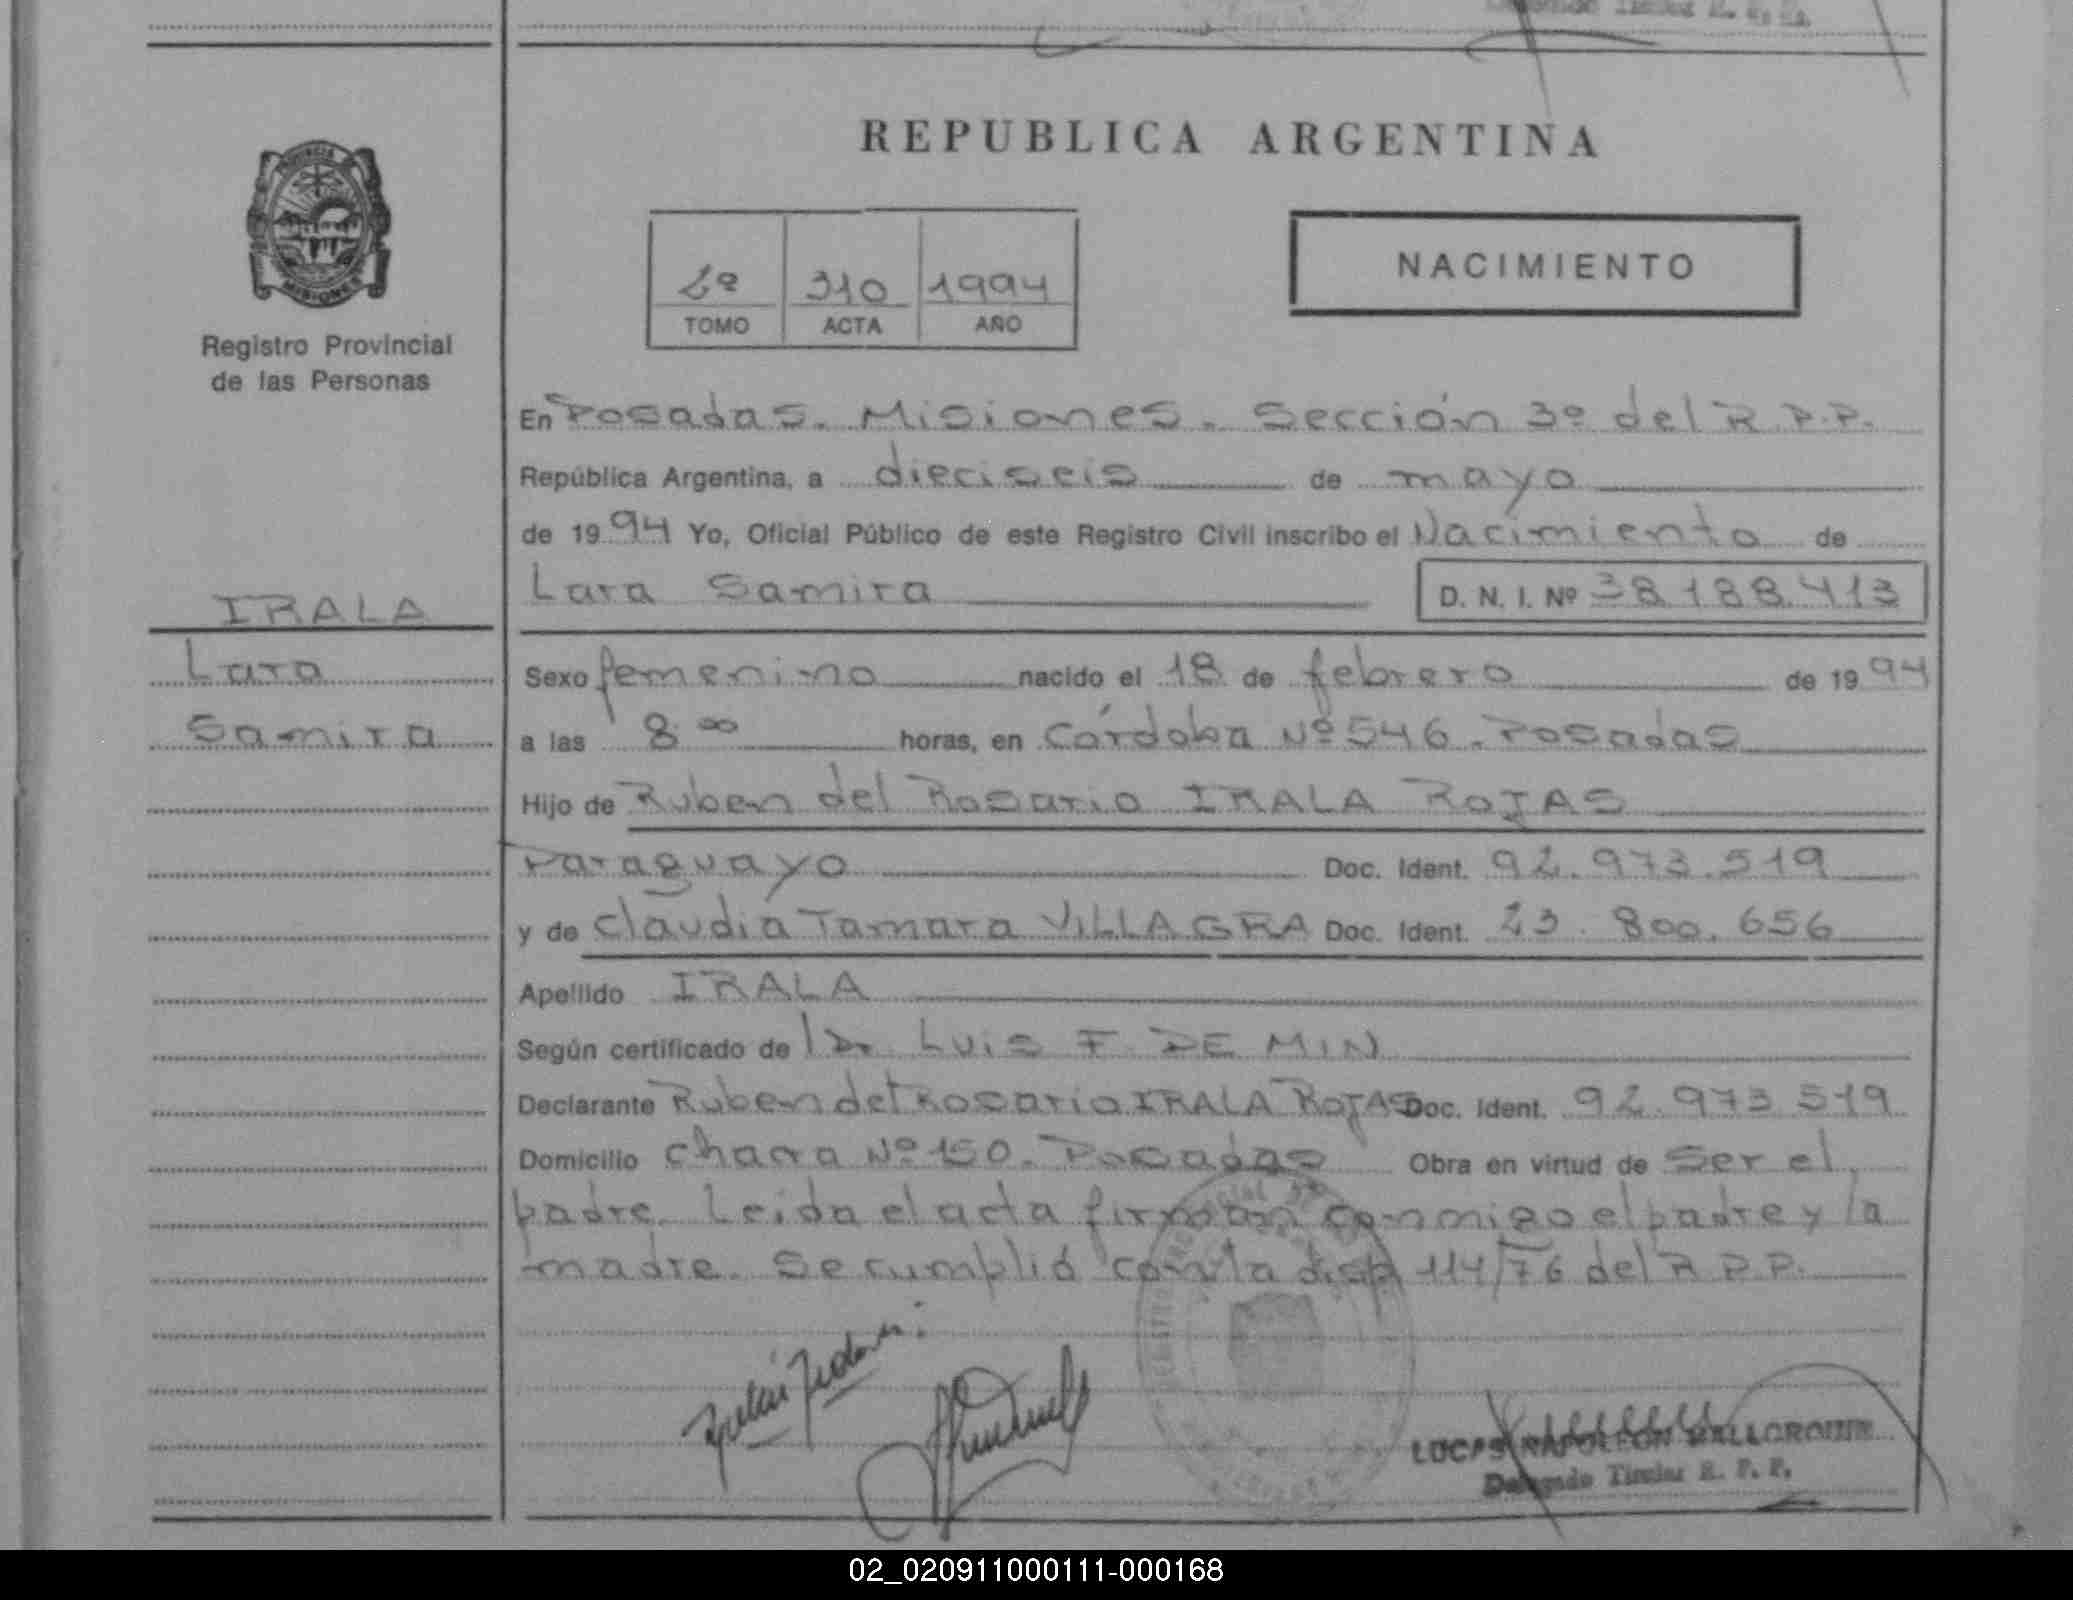 REPUBLICA ARGENTINA
PROVINCIA
MISIONES
Registro Provincial
de las Personas
2º 310 1994
TOMO ACTA AÑO
NACIMIENTO
En Posadas. Misiones. Sección 3º del R.P.P.
República Argentina, a dieciseis de mayo
de 1994 Yo, Oficial Público de este Registro Civil inscribo el Nacimiento de
Lara Samira D. N. I. Nº 38.188.413
IRALA
Lara
Samira
Sexo femenino nacido el 18 de febrero de 1994
a las 8 ⁰⁰ horas, en Córdoba Nº 546. Posadas
Hijo de Ruben del Rosario IRALA ROJAS
Paraguayo Doc. Ident. 92.973.519
y de Claudia Tamara VILLAGRA Doc. Ident. 23.800.656
Apellido IRALA
Según certificado de Dr. LUIS F. DE MIN
Declarante Ruben del Rosario IRALA ROJAS Doc. Ident. 92.973.519
Domicilio Chacra Nº 150. Posadas Obra en virtud de Ser el
padre. Leida el acta firman conmigo el padre y la
madre. Se cumplió con la disp 114/76 del R.P.P.
LUCAS NAPOLEON
Delegado Titular R. P. P.
02_020911000111-000168